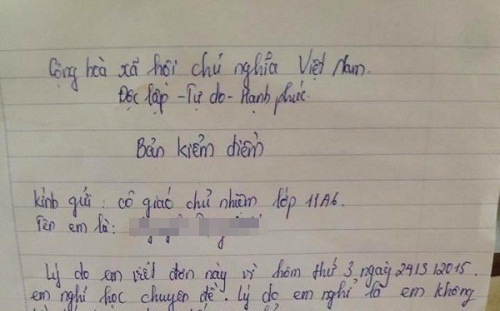 Cộng hoà xã hội chủ nghĩa Việt Nam.
Độc lập - Tự do - Hạnh phúc.
Bản kiểm điểm
Kính gửi : cô giáo chủ nhiệm lớp 11A6.
Tên em là:
Lý do em viết đơn này vì hôm thứ 3 ngày 24/3/2015.
em nghỉ học chuyên đề. Lý do em nghỉ là em không